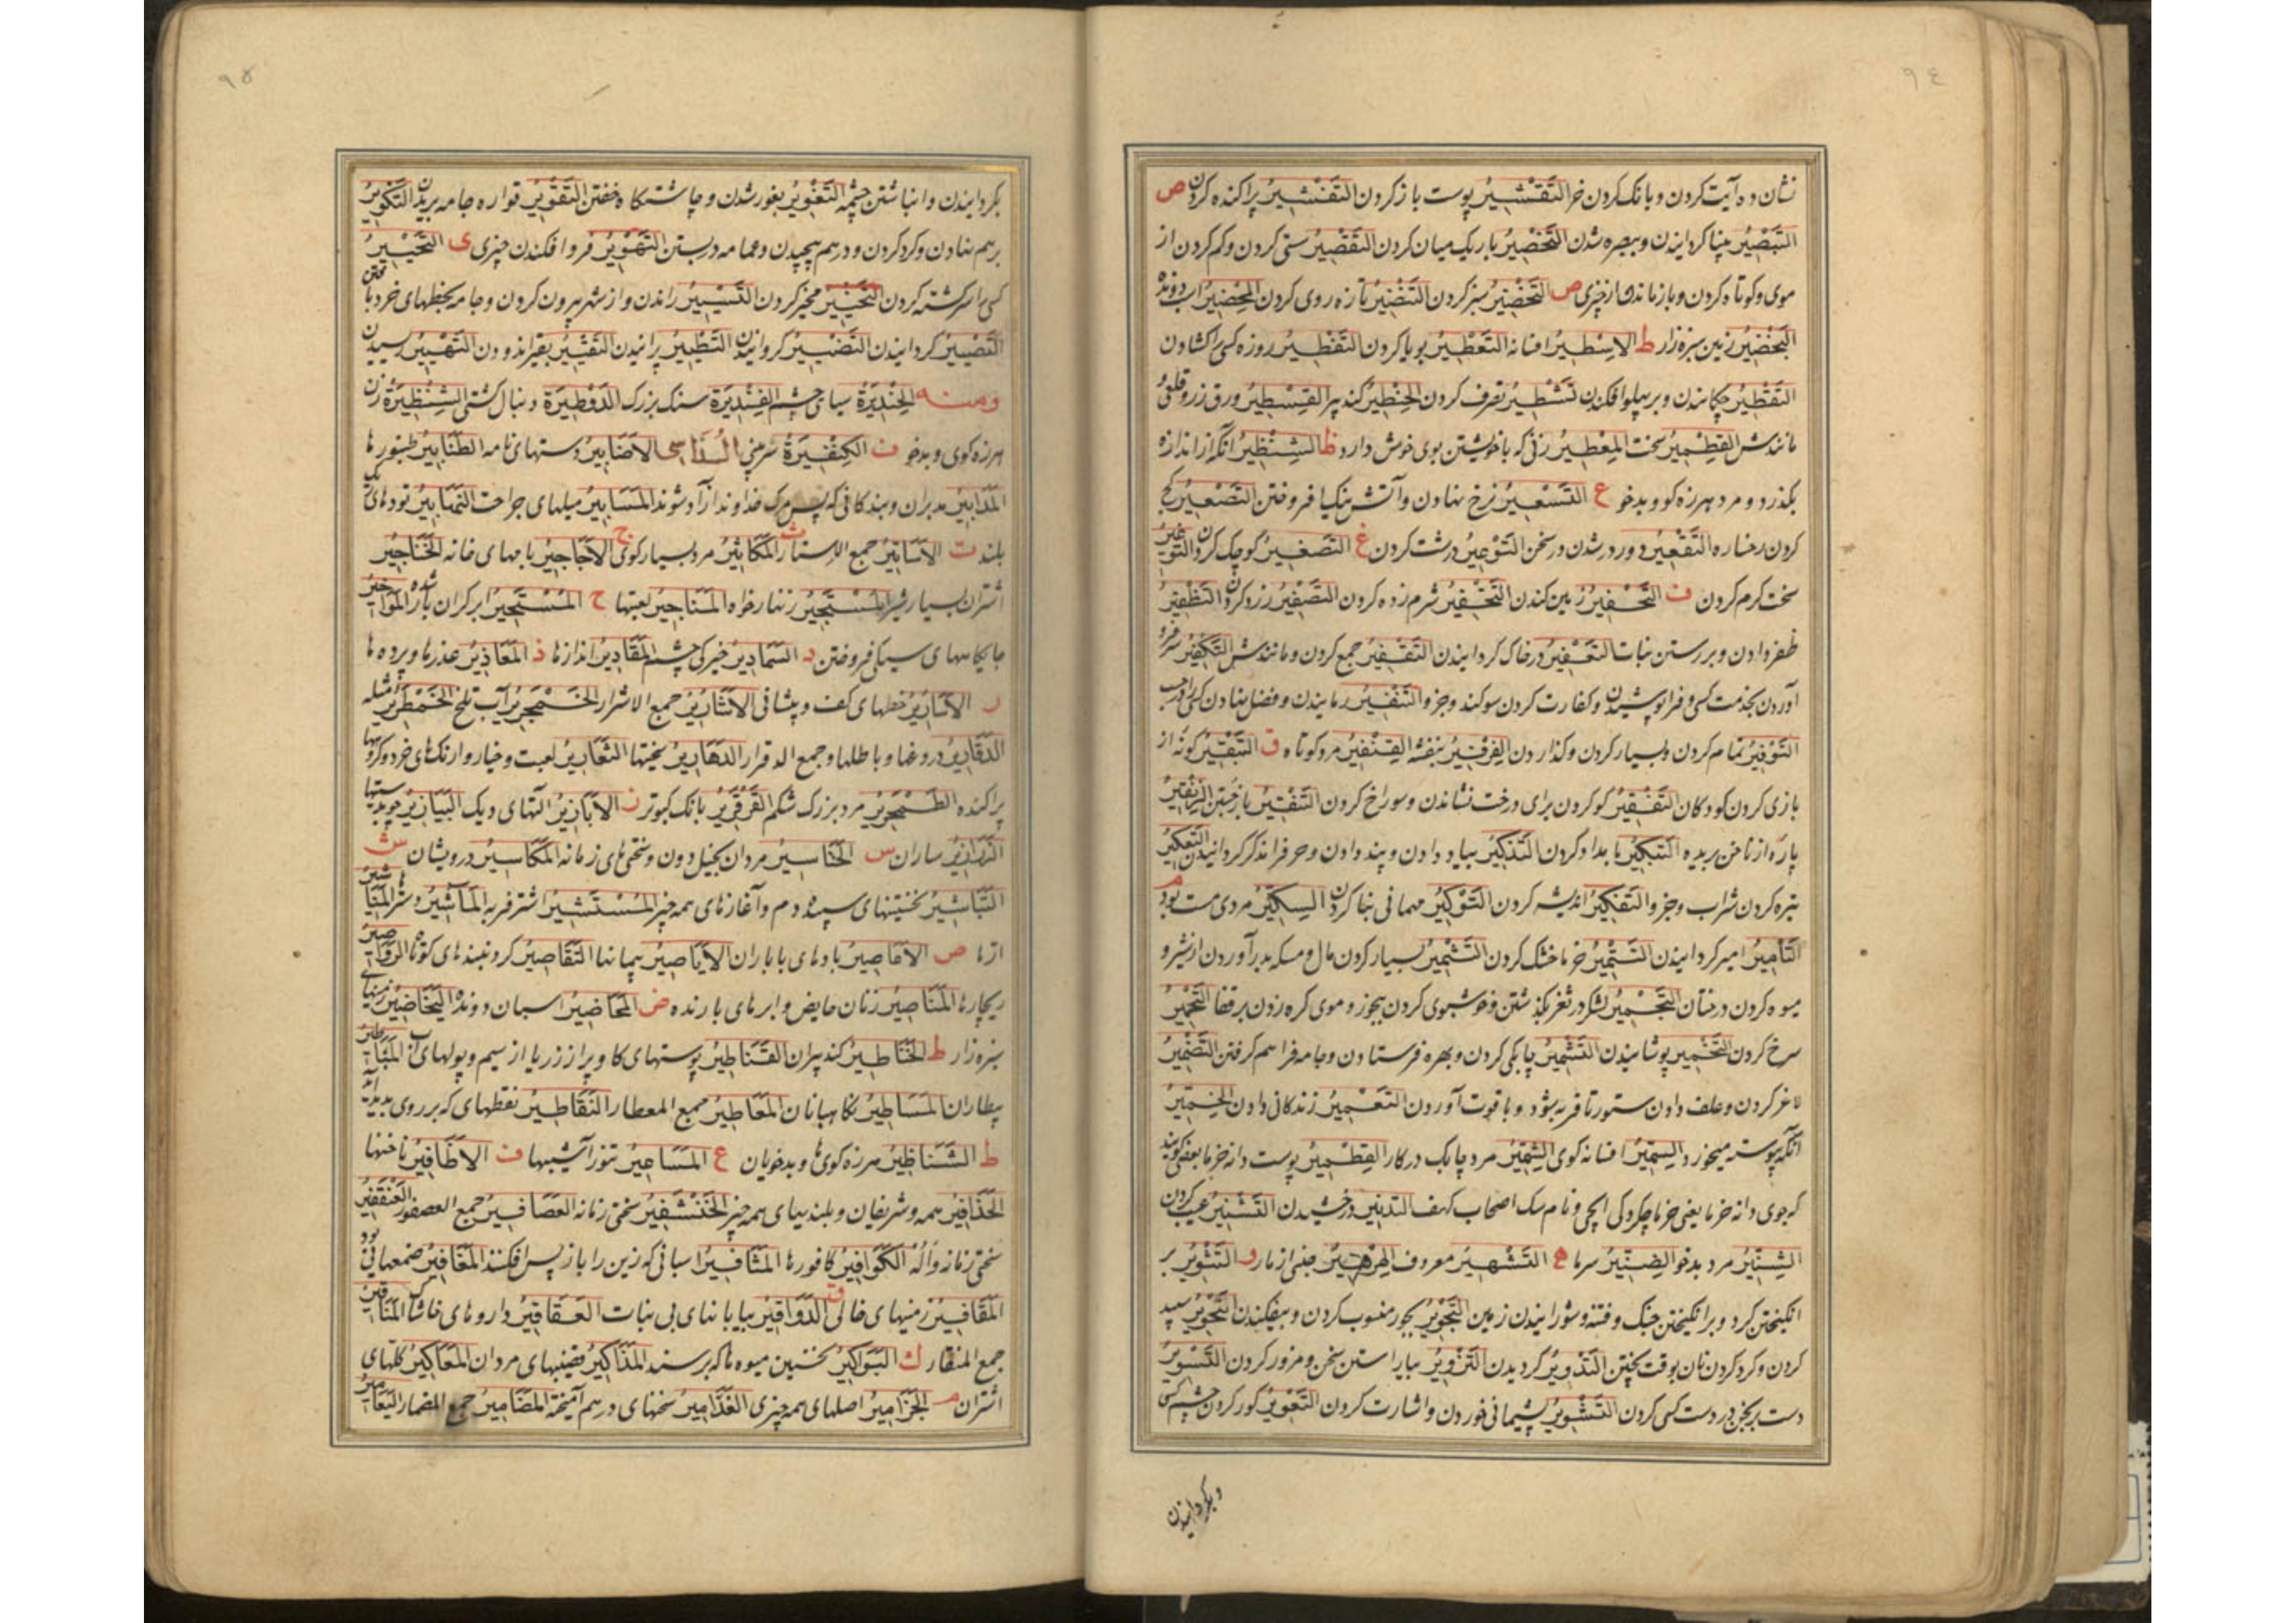 ٩٤
نشان ده آیت کردن و بانک کردن خر التَقْشِیرُ پوست باز کردن التَفْشِیرُ پراکنده کردن ص
التَبْصِیرُ بینا کردانیدن و ببصره شدن التَخْصِیرُ باریک میان کردن التَقْصِیرُ سستی کردن و کم کردن از
موی و کوتاه کردن و بازماندن از چیزی ض التَخْضِیرُ سبز کردن التَنْضِیرُ تازه روی کردن المِحْضِیرُ اسب دونده
الیَخْضِیرُ زمین سبزه زار ط الاِسْطِیرُ افسانه التَعْطِیرُ بویا کردن التَفْطِیرُ روزه کسی را کشادن
التَقْطِیرُ چکانیدن و بر پهلو افکندن تَشْطِیرُ تصرف کردن الخِنْطِیرُ کنده پیر القِسْطِیرُ ورق زر و قلعی
مانندش القِطْمِیرُ سخت المِعْطِیرُ زنی که با خویشتن بوی خوش دارد ظ الشِنْظِیرُ آنکه از اندازه
بکذرد و مرد هرزه کو و بدخو ع التَسْعِیرُ نرخ نهادن و آتش نیک افروختن التَصْعِیرُ کج
کردن رخساره التَقْعِیرُ دور در شدن در سخن التَوْعِیرُ درشت کردن غ التَصْغِیرُ کوچک کردن التَوْغِیرُ
سخت کرم کردن ف التَحْفِیرُ زمین کندن التَخْفِیرُ شرم زده کردن التَصْفِیرُ زرد کردن التَظْفِیرُ
ظفر دادن و بررستن نبات التَعْفِیرُ در خاک کردانیدن التَقْفِیرُ جمع کردن و مانندش التَکْفِیرُ سر فرو
آوردن بخدمت کسی و فراپوشیدن و کفارت کردن سوکند و جزو التَنْفِیرُ رمانیدن و فضل نهادن کسی را
التَوْفِیرُ تمام کردن و بسیار کردن و کذاردن الفِرْفِیرُ بنفشه القِنْفِیرُ مرد کوتاه ق التَبْقِیرُ کونه از
بازی کردن کودکان التَفْقِیرُ کو کردن برای درخت نشاندن و سوراخ کردن التَنْقِیرُ باز جستن الزِنْقِیرُ
پاره از ناخن بریده التَبْکِیرُ بامداد کردن التَذْکِیرُ بیاد دادن و پند دادن و حرف را مذکر کردانیدن التَعْکِیرُ
تیره کردن شراب و جزو التَفْکِیرُ اندیشه کردن التَوْکِیرُ مهمانی بنا کردن السِکِّیرُ مردی مست بود م
التَأمِیرُ امیر کردانیدن التَتْمِیرُ خرما خشک کردن التَثْمِیرُ بسیار کردن مال و مسکه بدر آوردن از شیر و
میوه کردن درختان التَجْمِیرُ لشکر در ثغر بکذشتن و خوشبوی کردن ببخور و موی کره زدن بر قفا التَحْمِیرُ
سرخ کردن التَخْمِیرُ پوشانیدن التَشْمِیرُ چابکی کردن و بهره فرستادن و جامه فراهم کرفتن التَضْمِیرُ
لاغر کردن و علف دادن ستور تا فربه شود و با قوت آوردن التَعْمِیرُ زندکانی دادن الخِمِّیرُ
آنکه پیوسته میخورد السِمِّیرُ افسانه کوی الشِمِّیرُ مرد چابک در کار القِطْمِیرُ پوست دانه خرما بعضی کویند
که جوی دانه خرما یعنی خرما چکردکی ایچی و نام سک اصحاب کهف التدنِیرُ درخشیدن التَشْنِیرُ عیب کردن
الشِنِّیرُ مرد بدخو الصِنِّیرُ سرما ه التَشْهِیرُ معروف الهِرْهِیرُ جنسی از مار و التَثْوِیرُ بر
انکیختن کرد و برانکیختن جنک و فتنه و شورانیدن زمین التَجْوِیرُ بجور منسوب کردن و بیفکندن التَحْوِیرُ سپید
کردن و کرد کردن نان بوقت پختن التَدْوِیرُ کردیدن التَزْوِیرُ بیاراستن سخن و مزور کردن التَسْوِیرُ
دست برنجن در دست کسی کردن التَشْوِیرُ پشیمانی خوردن و اشارت کردن التَعْوِیرُ کور کردن چشم کسی
و بکردانیدن
٩٥
بکردانیدن و انباشتن چشمه التَغْوِیرُ بغور شدن و چاشتکاه خفتن التَقْوِیرُ قواره جامه بریدن التَکْوِیرُ
برهم نهادن و کرد کردن و درهم پیچیدن و عمامه در بستن التَهْوِیرُ فرو افکندن چیزی ی التَحْیِیرُ
کسی را سرکشته کردن التَخْیِیرُ مخیر کردن التَسْیِیرُ راندن و از شهر بیرون کردن و جامه بخطهای خرد بافتن
التَصْیِیرُ کردانیدن التَضْیِیرُ کروانیدن التَطْیِیرُ پرانیدن التَقْیِیرُ بقیر اندودن التَهْیِیرُ رسیدن
ومنه الحِنْدِیرَةُ سیاهی چشم الفِنْدِیرَةُ سنک بزرک الدَوْطِیرَةُ دنبال کشتی الشِنْظِیرَةُ زن
هرزه کوی و بدخو ف الکِنْفِیرَةُ سُداسی الاَضَابِیرُ دستهای نامه الطَنَابِیرُ طنبورها
المَدَابِیرُ مدبران و بندکانی که پس مرک خداوند آزاد شوند المَسَابِیرُ میلهای جراحت النَهَابِیرُ تودهای ریک
بلند ت الاَسَاتِیرُ جمع الاستار ث المَکَاثِیرُ مرد بسیار کوی ج الاَجَاجِیرُ بامهای خانه الخَنَاجِیرُ
اشتران بسیار شیر المُسْتَجِیرُ زنهار خواه المَنَاجِیرُ لعبتها ح المُسْتَحِیرُ ابر کران بار شده المَوَاخِیرُ
جایکاههای سیکی فروختن د السَمَادِیرُ خیرکی چشم المَقَادِیرُ اندازها ذ المَعَاذِیرُ عذرها و پرده ها
ر الاَسَارِیرُ خطهای کف و پیشانی الاَشَارِیرُ جمع الاشرار الخَمْجَرِیرُ آب تلخ الخَمْطَرِیرُ مثله
الدَقَارِیرُ دروغها و باطلها و جمع الدقرار الدَهَارِیرُ سختیها الثَعَارِیرُ لعبت و خیار وارنکهای خرد و کروهها
پراکنده الطَمْجَرِیرُ مرد بزرک شکم القَرْقَرِیرُ بانک کبوتر ز الاَبَازِیرُ آلتهای دیک البَیَازِیرُ چوب دستیها
ساران س الخَنَاسِیرُ مردان بخیل دون و سختی های زمانه المَکَاسِیرُ درویشان ش
التَبَاشِیرُ نخستینهای سپیده دم و آغازهای همه چیز المُسْتَشِیرُ اشتر فربه المَآشِیرُ و المَنَاشِیرُ
ارّها ص الاَعَاصِیرُ بادهای با باران الاَیَاصِیرُ پیمانها التَقَاصِیرُ کردنبندهای کوتاه
ریچارها المَنَاصِیرُ زنان حایض و ابرهای بارنده ض المَحَاضِیرُ اسبان دونده الیَخَاضِیرُ زمینهای
سبزه زار ط الخَنَاطِیرُ کنده پیران القَنَاطِیرُ پوستهای کاو پر از زر یا از سیم و پولهای آب
بیطاران المَسَاطِیرُ نکاهبانان المَعَاطِیرُ جمع المعطار النَقَاطِیرُ نقطهای که بر روی پدید آید
ظ الشَنَاظِیرُ هرزه کوی ها و بدخویان ع المَسَاعِیرُ تنور آشیبها ف الاَظَافِیرُ ناخنها
الحَذَافِیرُ همه و شریفان و بلندیهای همه چیز الخَنْشَفِیرُ سختی زمانه العَصَافِیرُ جمع العصفور العَنْقَفِیرُ
سختی زمانه الکَوَافِیرُ کافورها المَثَافِیرُ اسبانی که زین را باز پس افکنند المَغَافِیرُ
المَقَافِیرُ زمینهای خالی ق الدَوَاقِیرُ بیابانهای بی نبات العَقَاقِیرُ داروهای المَنَاقِیرُ
جمع المنقار ک البَوَاکِیرُ نخستین میوه ها که برسند المَذَاکِیرُ قضیبهای مردان المَعَاکِیرُ کلهای
اشتران م الجَزَامِیرُ اصلهای همه چیزی الغَذَامِیرُ سخنهای درهم آمیخته المَضَامِیرُ جمع المضمار الیَعَامِیرُ